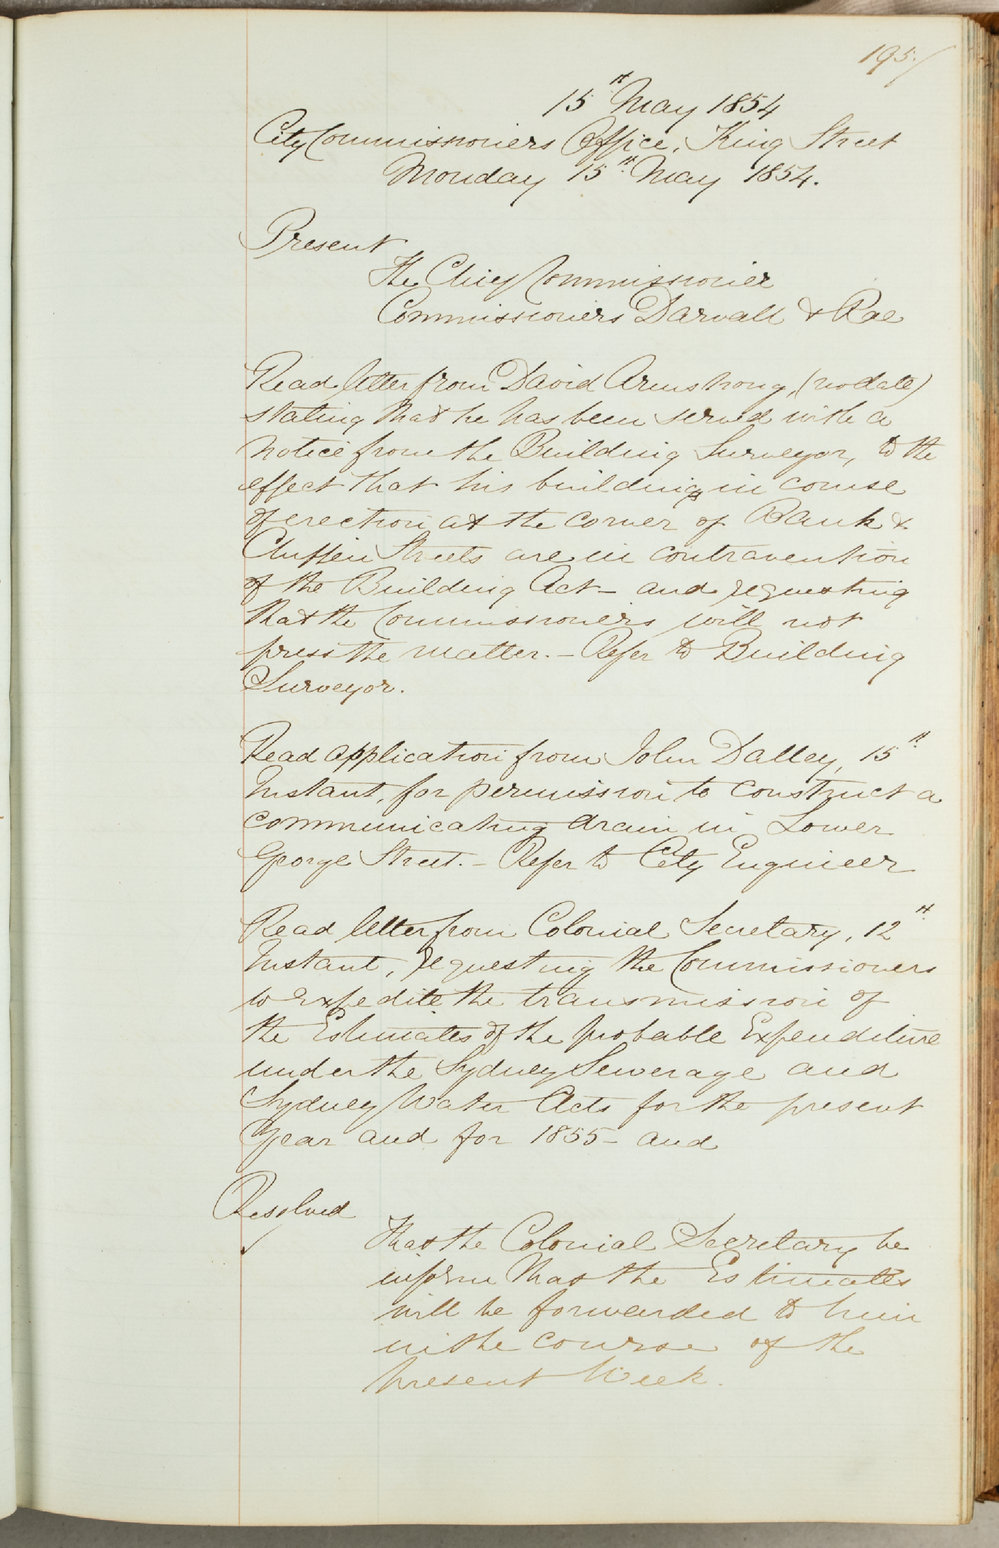 195
15th May 1854
City Commissioners Office, King Street
Monday 15th May 1854.
Present
The Chief Commissioner
Commissioners Darvall & Rae
Read letter from David Armstrong, (no date)
stating that he has been served with a
notice from the Building Surveyor, to the
effect that his buildings in course
of erection at the corner of Bank &
Streets are in contravention
of the Building Act - and requesting
that the Commissioners will not
press the matter. - Refer to Building
Surveyor.
Read application from John Dalley, 15th
Instant, for permission to construct a
communicating drain in Lower
George Street. - Refer to City Engineer
Read letter from Colonial Secretary, 12th
Instant, requesting the Commissioners
to expedite the transmission of
the Estimates of the probable Expenditure
under the Sydney Sewerage and
Sydney Water Acts for the present
Year and for 1855 - and
Resolved
That the Colonial Secretary be
inform that the Estimates
will be forwarded to him
in the course of the
present Week.